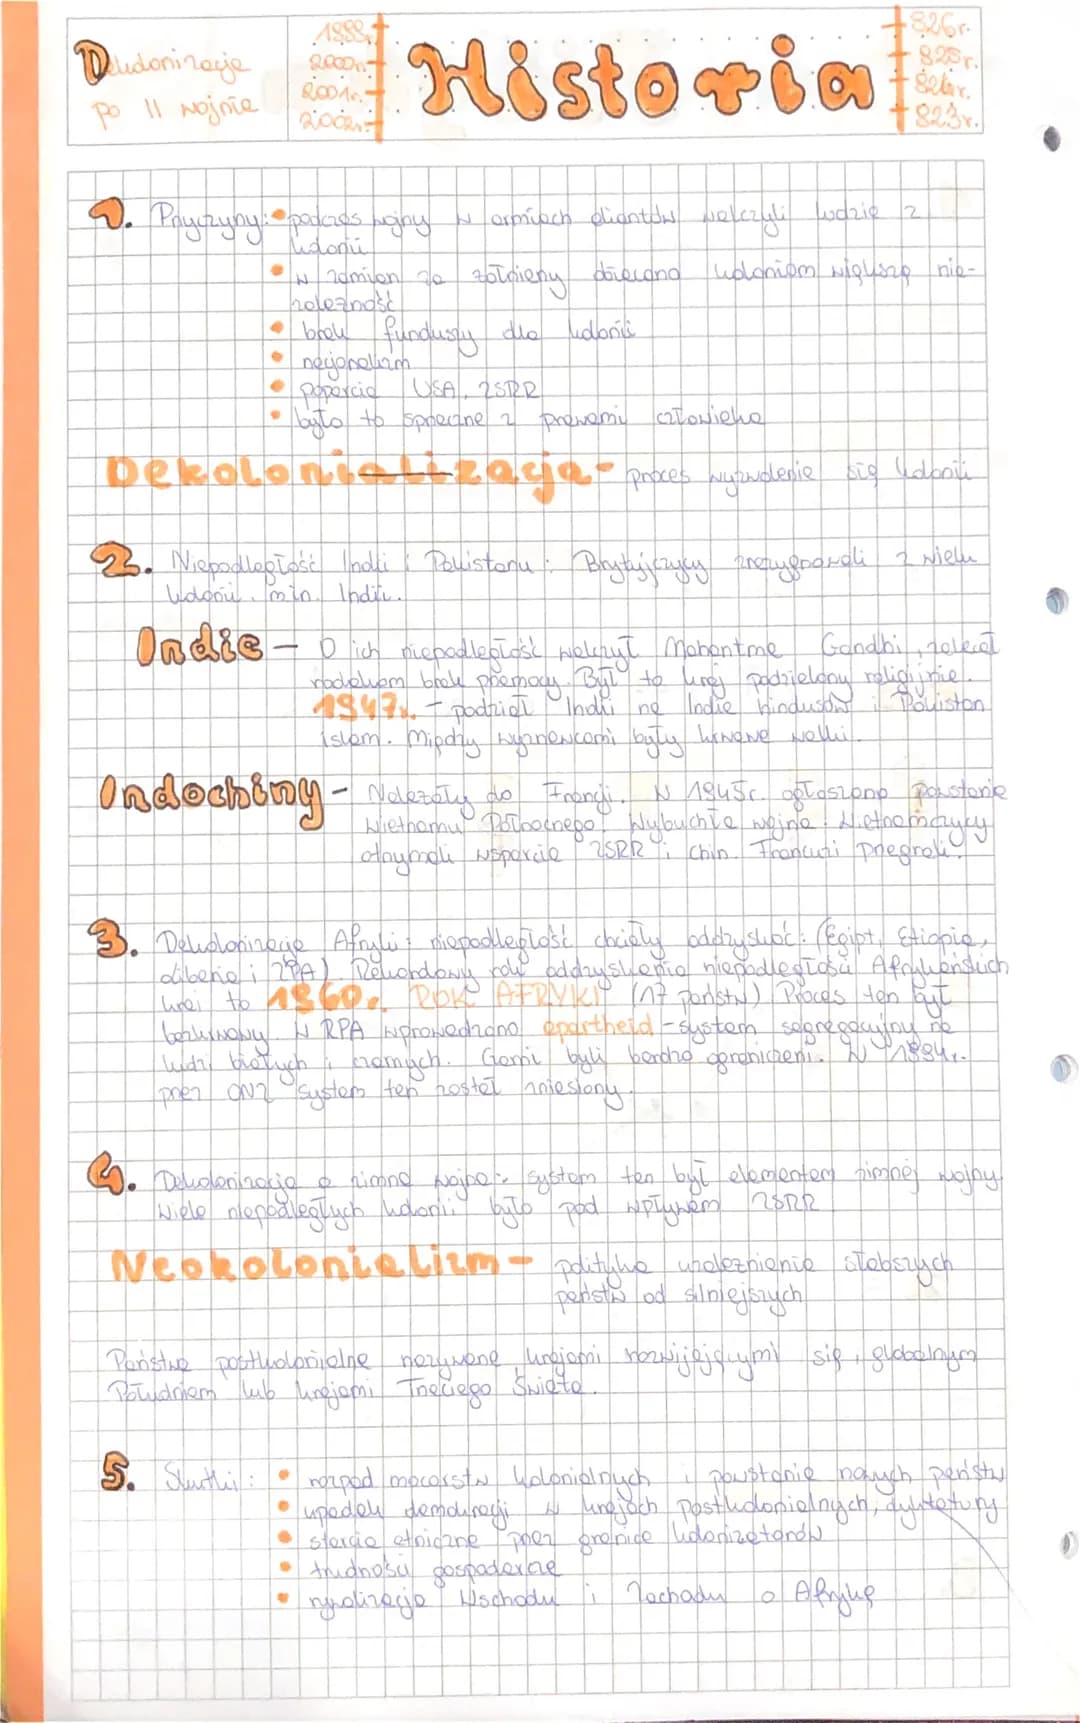 Dekolonizacja
po II wojnie
1999r.
2000r.
2001r.
2002r.
Historia
826r.
825r.
824r.
823r.
1. Przyczyny: • podczas wojny w armiach aliantów walczyli ludzie z
kolonii
• w zamian za żołnierzy obiecano koloniom większą nie-
zależność
• brak funduszy dla kolonii
• nacjonalizm
• poparcie USA, ZSRR
• było to sprzeczne z prawami człowieka
Dekolonializacja - proces wyzwolenia się kolonii
2. Niepodległość Indii i Pakistanu: Brytyjczycy zrezygnowali z wielu
kolonii. min. Indii.
Indie - O ich niepodległość walczył Mahantma Gandhi, zalecał
rodakom brak przemocy. Był to kraj podzielony religijnie.
1947r. - podział Indii na Indie hindusów i Pakistan
islam. Między wyznawcami były krwawe walki.
Indochiny - Należały do Francji. W 1945r. ogłoszono powstanie
Wietnamu Północnego. Wybuchła wojna. Wietnamczycy
otrzymali wsparcie ZSRR i Chin. Francuzi przegrali.
3. Dekolonizacja Afryki: niepodległość chciały oddzyskać: (Egipt, Etiopia,
Liberia i ZPA). Rekordowy rok oddzyskania niepodległości Afrykańskich
krai to 1960r. ROK AFRYKI (17 państw) Proces ten był
bezkrwawy. W RPA wprowadzono apartheid - system segregacyjny na
ludzi białych i czarnych. Czarni byli bardzo ograniczeni. W 1994r.
przez ONZ system ten został zniesiony.
4. Dekolonizacja a zimna wojna: system ten był elementem zimnej wojny
Wiele niepodległych kolonii było pod wpływem ZSRR
Neokolonializm - polityka uzależnienia słabszych
państw od silniejszych
Państwa postkolonialne nazywane krajami rozwijającymi się, globalnym
Południem lub krajami Trzeciego Świata.
5. Skutki: • rozpad mocarstw kolonialnych i powstanie nowych państw
• upadek demokracji w krajach postkolonialnych, dyktatury
• starcia etniczne przez granice kolonizatorów
• trudności gospodarcze
• rywalizacja Wschodu i Zachodu o Afrykę